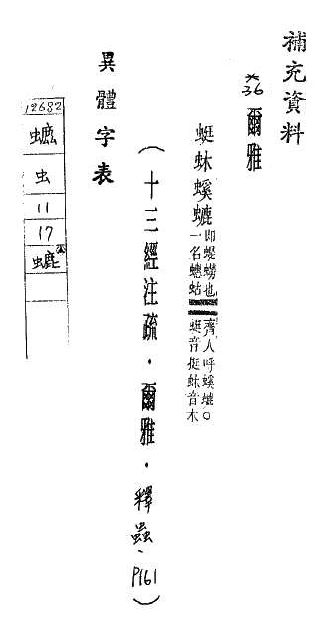 補充資料
※36 爾雅
蜓蚞螇螰
即蝭蟧也
一名蟪蛄
齊人呼螇螰○
蜓音挺蚞音木
(十三經注疏·爾雅·釋蟲、P161)
異體字表
12682
虫
11
17